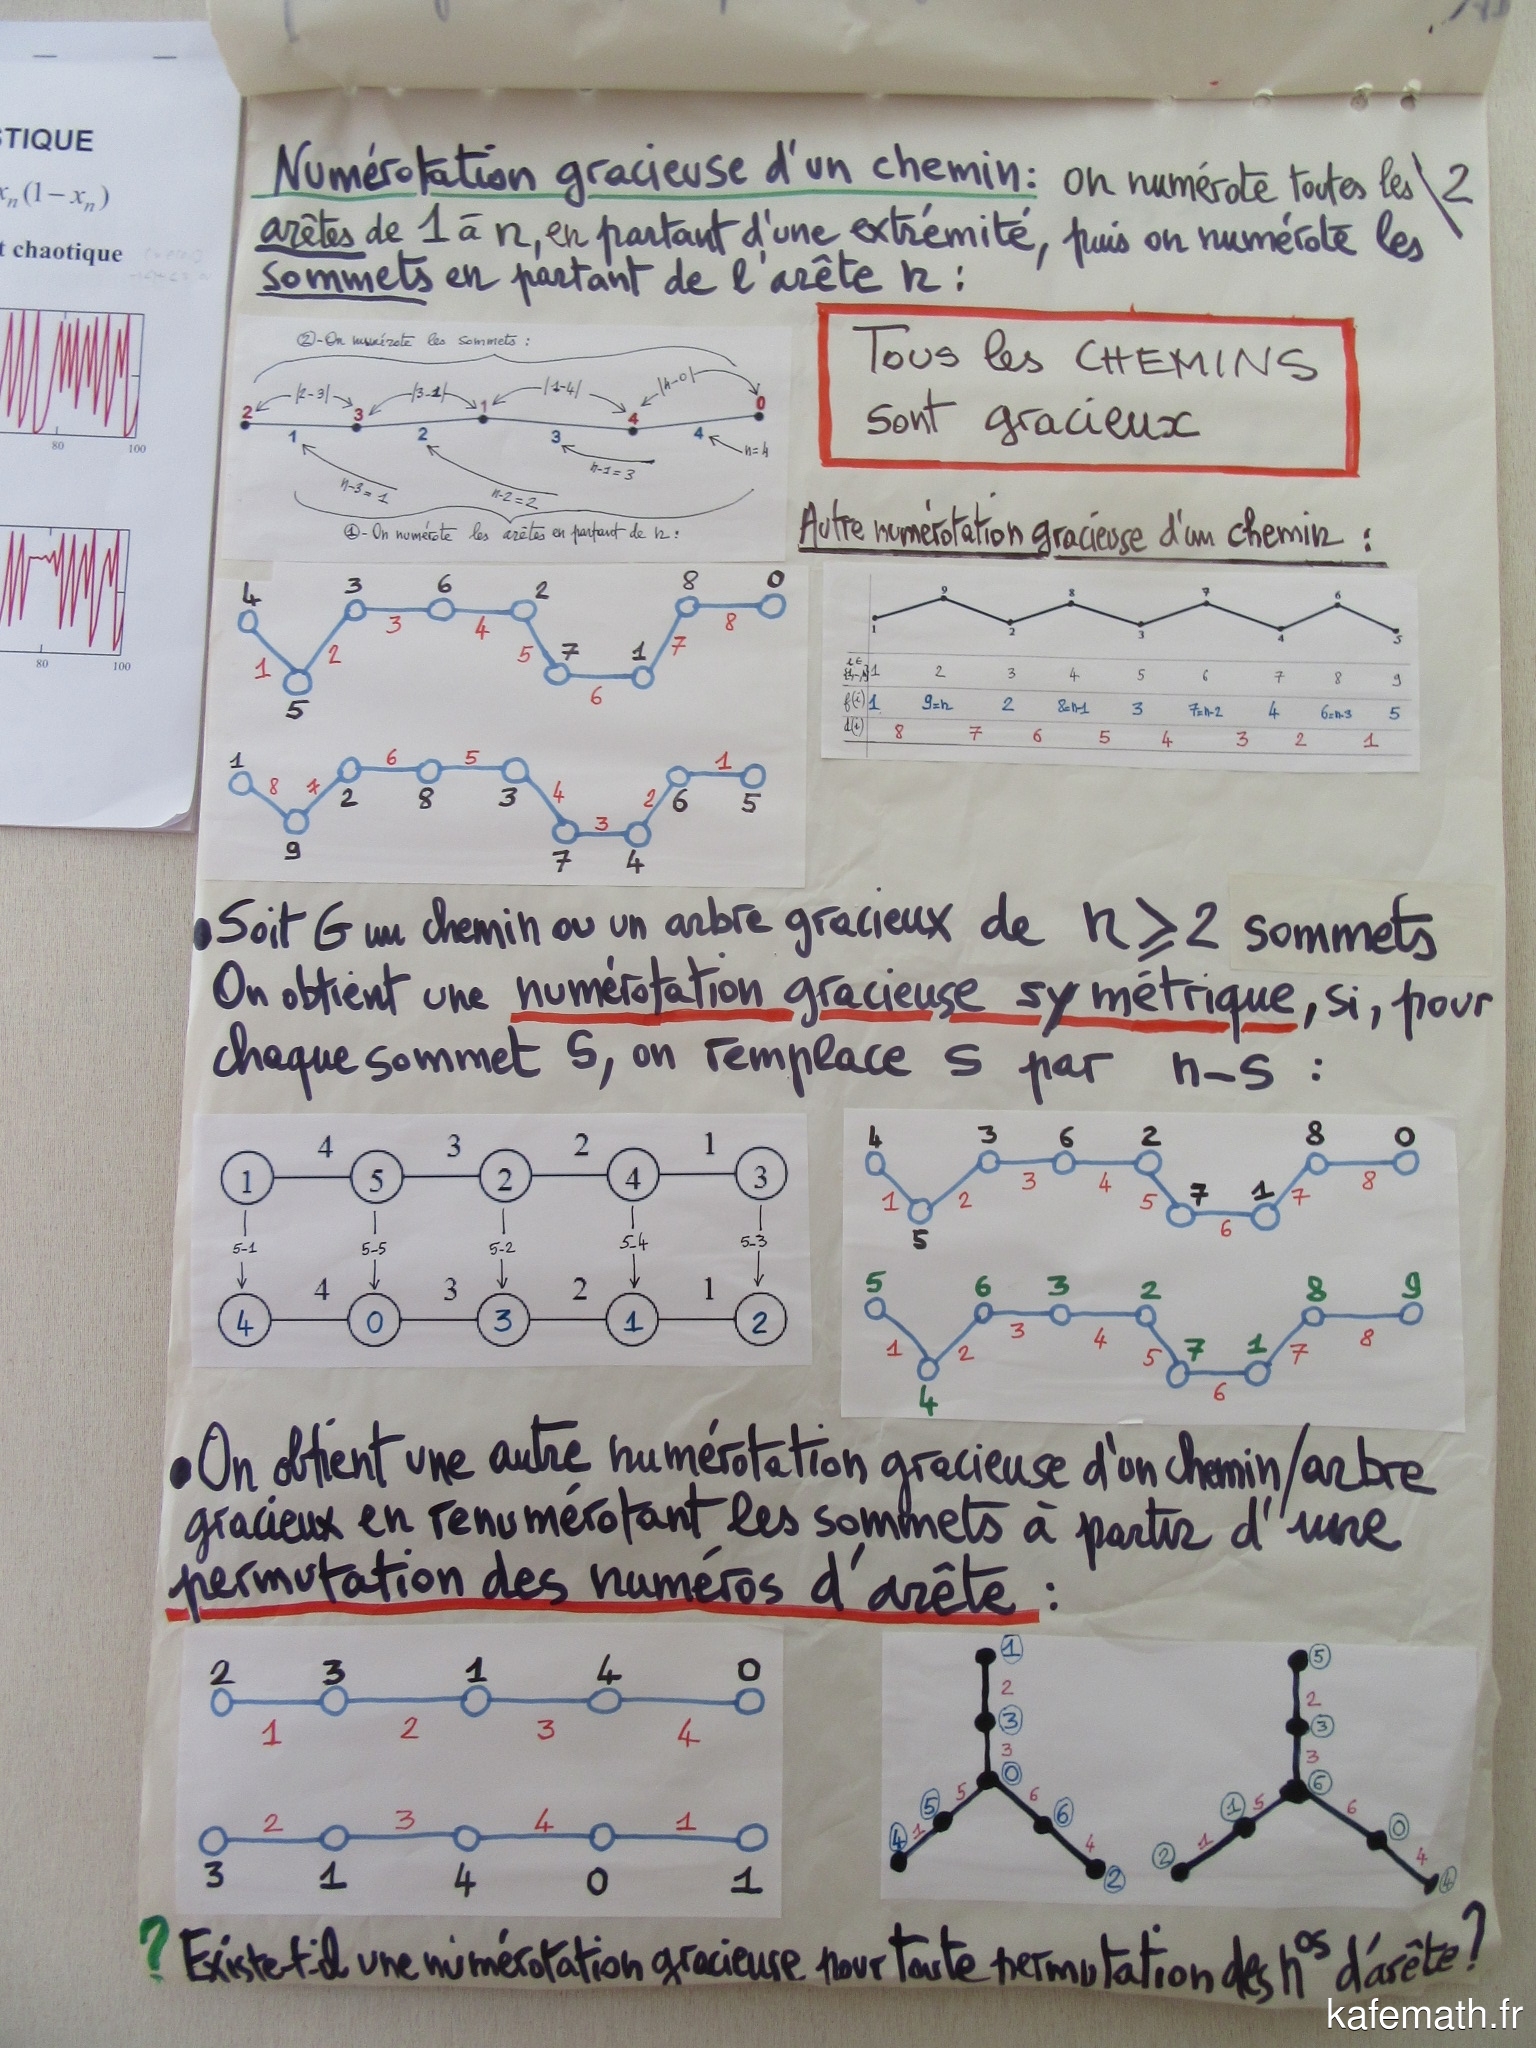 STIQUE
xₙ(1−xₙ)
t chaotique
80
100
80
100
Numérotation gracieuse d'un chemin: on numérote toutes les \2
arêtes de 1 à n, en partant d'une extrémité, puis on numérote les
sommets en partant de l'arête n :
②-On numérote les sommets :
|2-3| |3-1| |1-4| |4-0|
2 3 1 4 0
1 2 3 4
n-3=1 n-2=2 n-1=3 n=4
①-On numérote les arêtes en partant de n :
Tous les CHEMINS
sont gracieux
Autre numérotation gracieuse d'un chemin :
9 8 7 6
1 2 3 4 5
1 2 3 4 5 6 7 8 9
f(i) 1 9=n 2 8=n-1 3 7=n-2 4 6=n-3 5
d(i) 8 7 6 5 4 3 2 1
4 3 6 2 8 0
1 2 3 4 5 7 1 7 8
5 6
1 8 7 6 5 1
2 8 3 4 2 6 5
9 3
7 4
•Soit G un chemin ou un arbre gracieux de n ⩾ 2 sommets
On obtient une numérotation gracieuse symétrique, si, pour
chaque sommet S, on remplace S par n-S :
4 3 2 1
1 5 2 4 3
5-1 5-5 5-2 5-4 5-3
4 3 2 1
4 0 3 1 2
4 3 6 2 8 0
1 2 3 4 5 7 1 7 8
5 6
5 6 3 2 8 9
1 2 3 4 5 7 1 7 8
4 6
•On obtient une autre numérotation gracieuse d'un chemin/arbre
gracieux en renumérotant les sommets à partir d'une
permutation des numéros d'arête :
2 3 1 4 0
1 2 3 4
2 3 4 1
3 1 4 0 1
1
2
3
3
0
5 5 6 6
4 1 4 2
5
2
3
3
6
1 5 6 0
2 1 4 4
? Existe-t-il une numérotation gracieuse pour toute permutation des nos d'arête ?
kafemath.fr